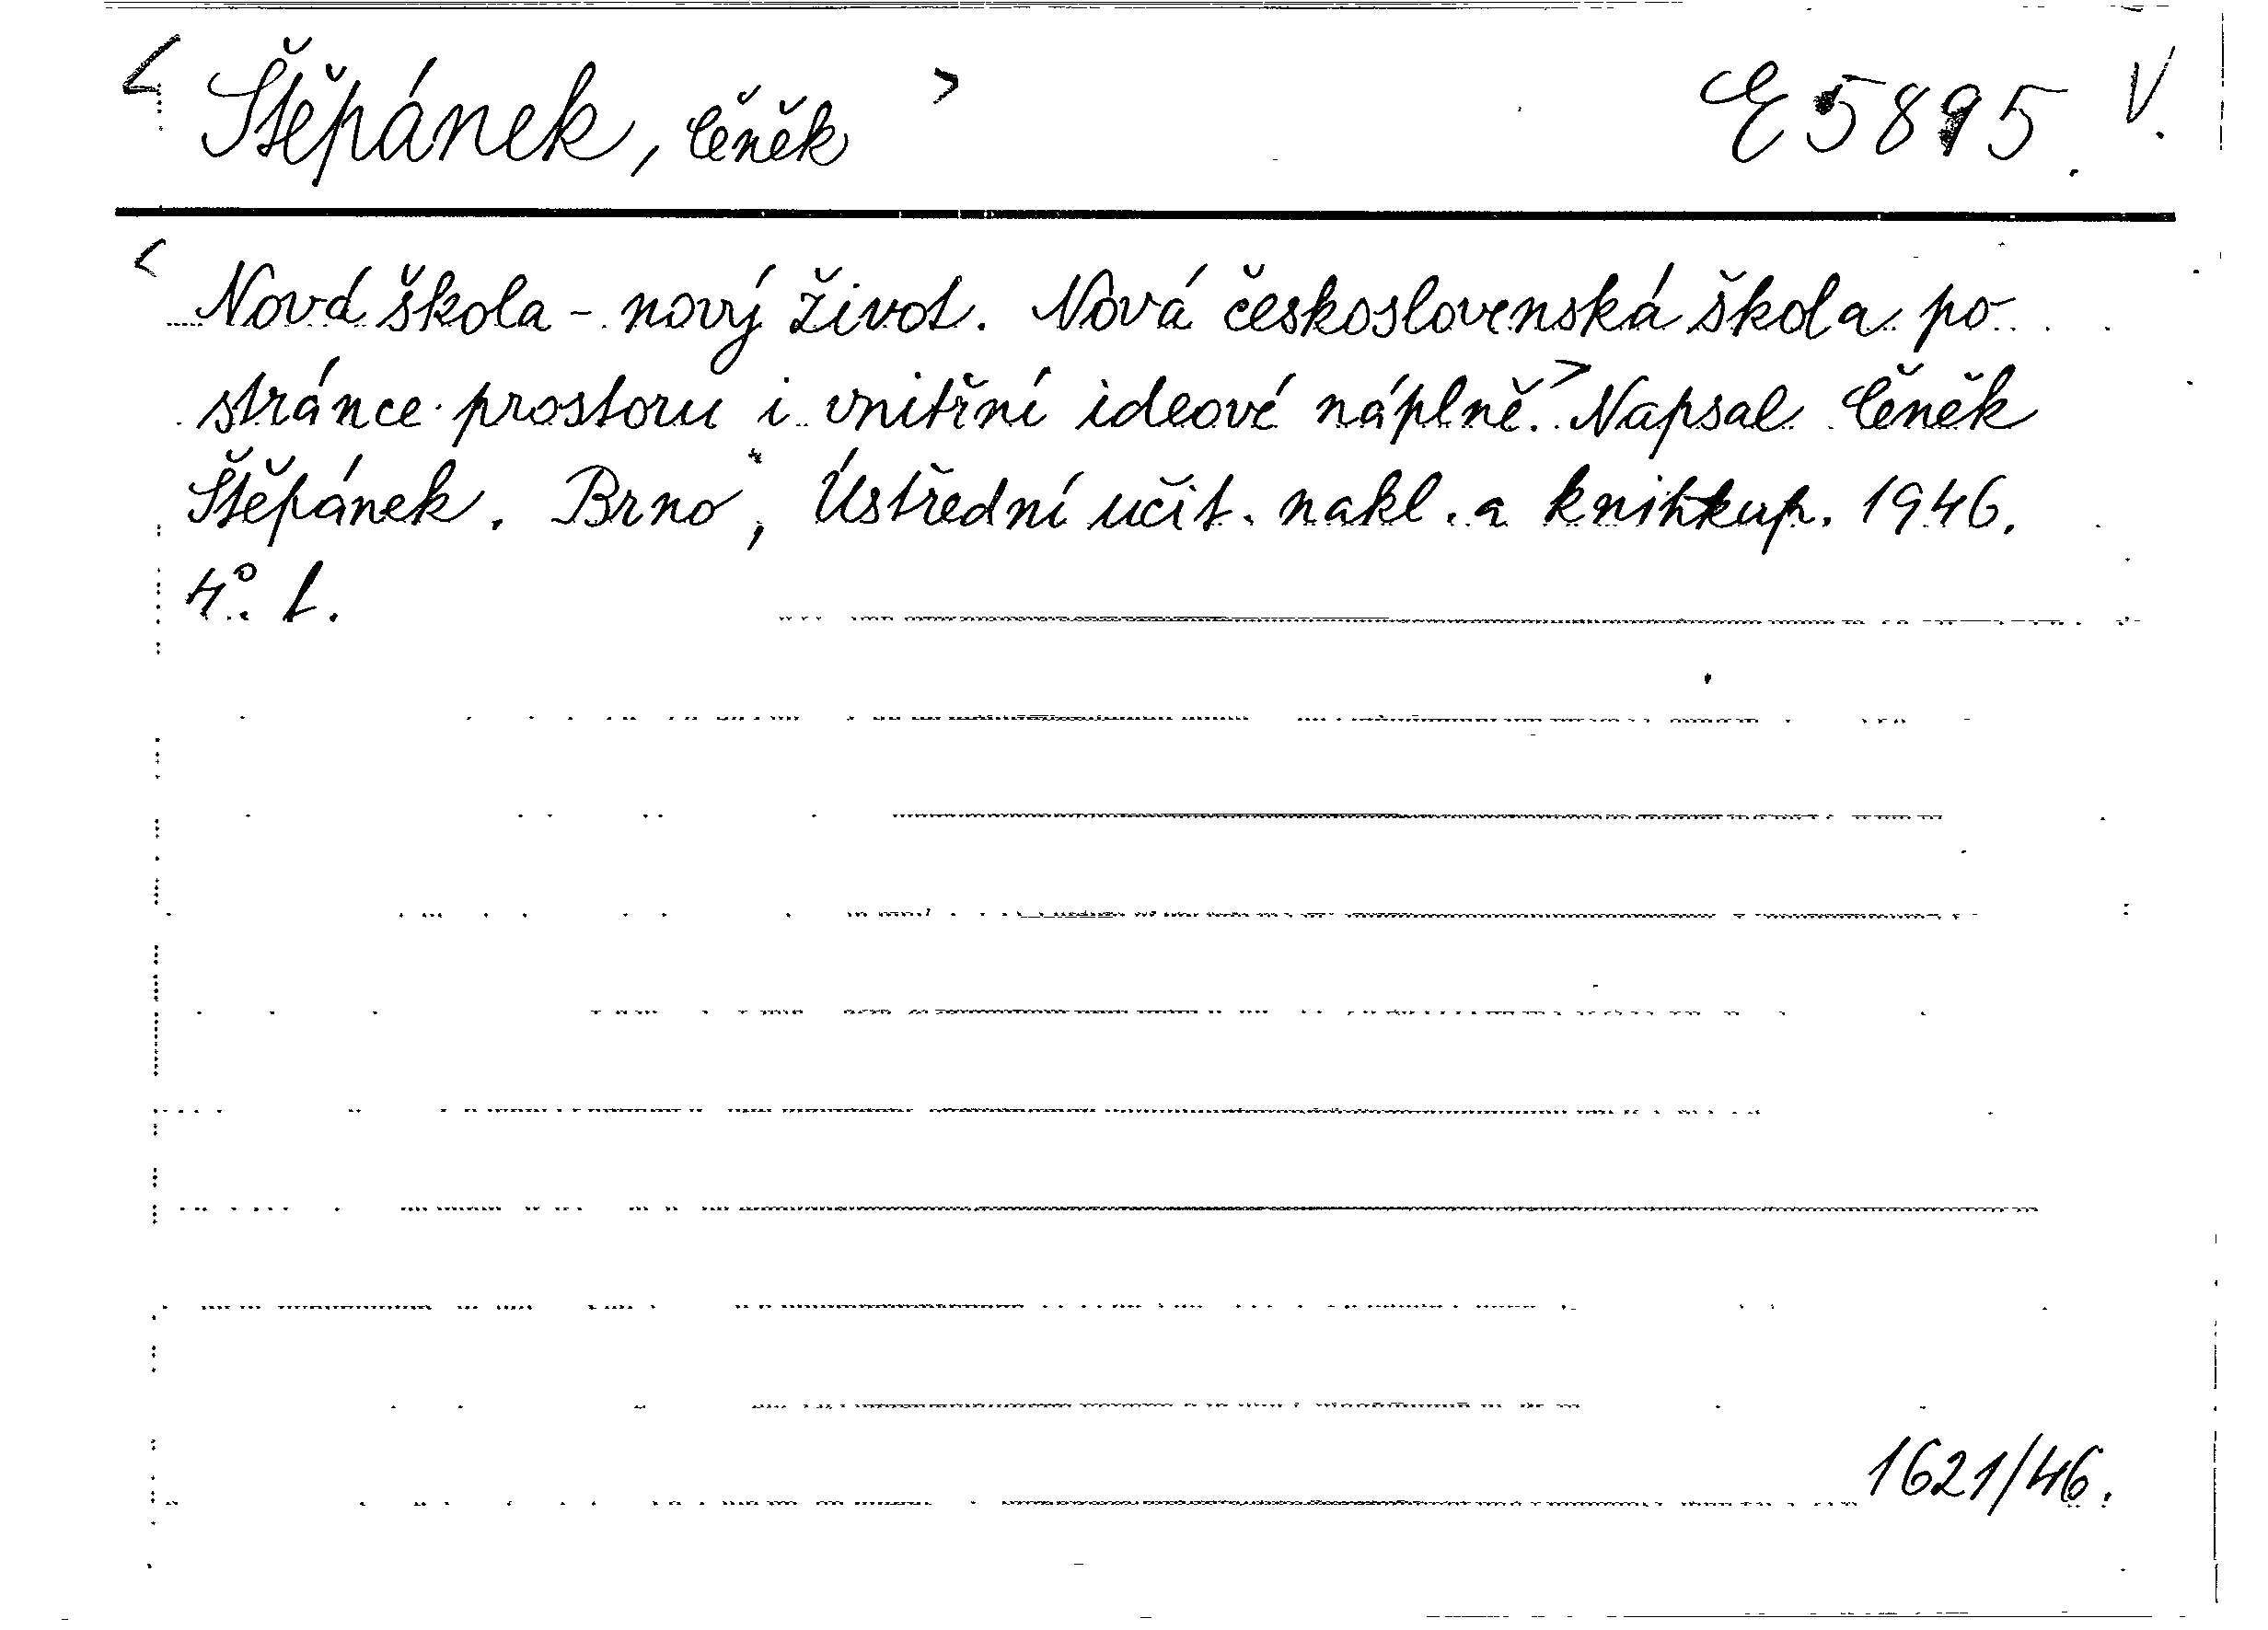 < Štěpánek, Čeněk > E 5895. V.
< Nová škola - nový život. Nová československá škola po
stránce prostoru i vnitřní ideové náplně.> Napsal Čeněk
Štěpánek. Brno, Ústřední učit. nakl. a knihkup. 1946.
4°. L.
1621/46.